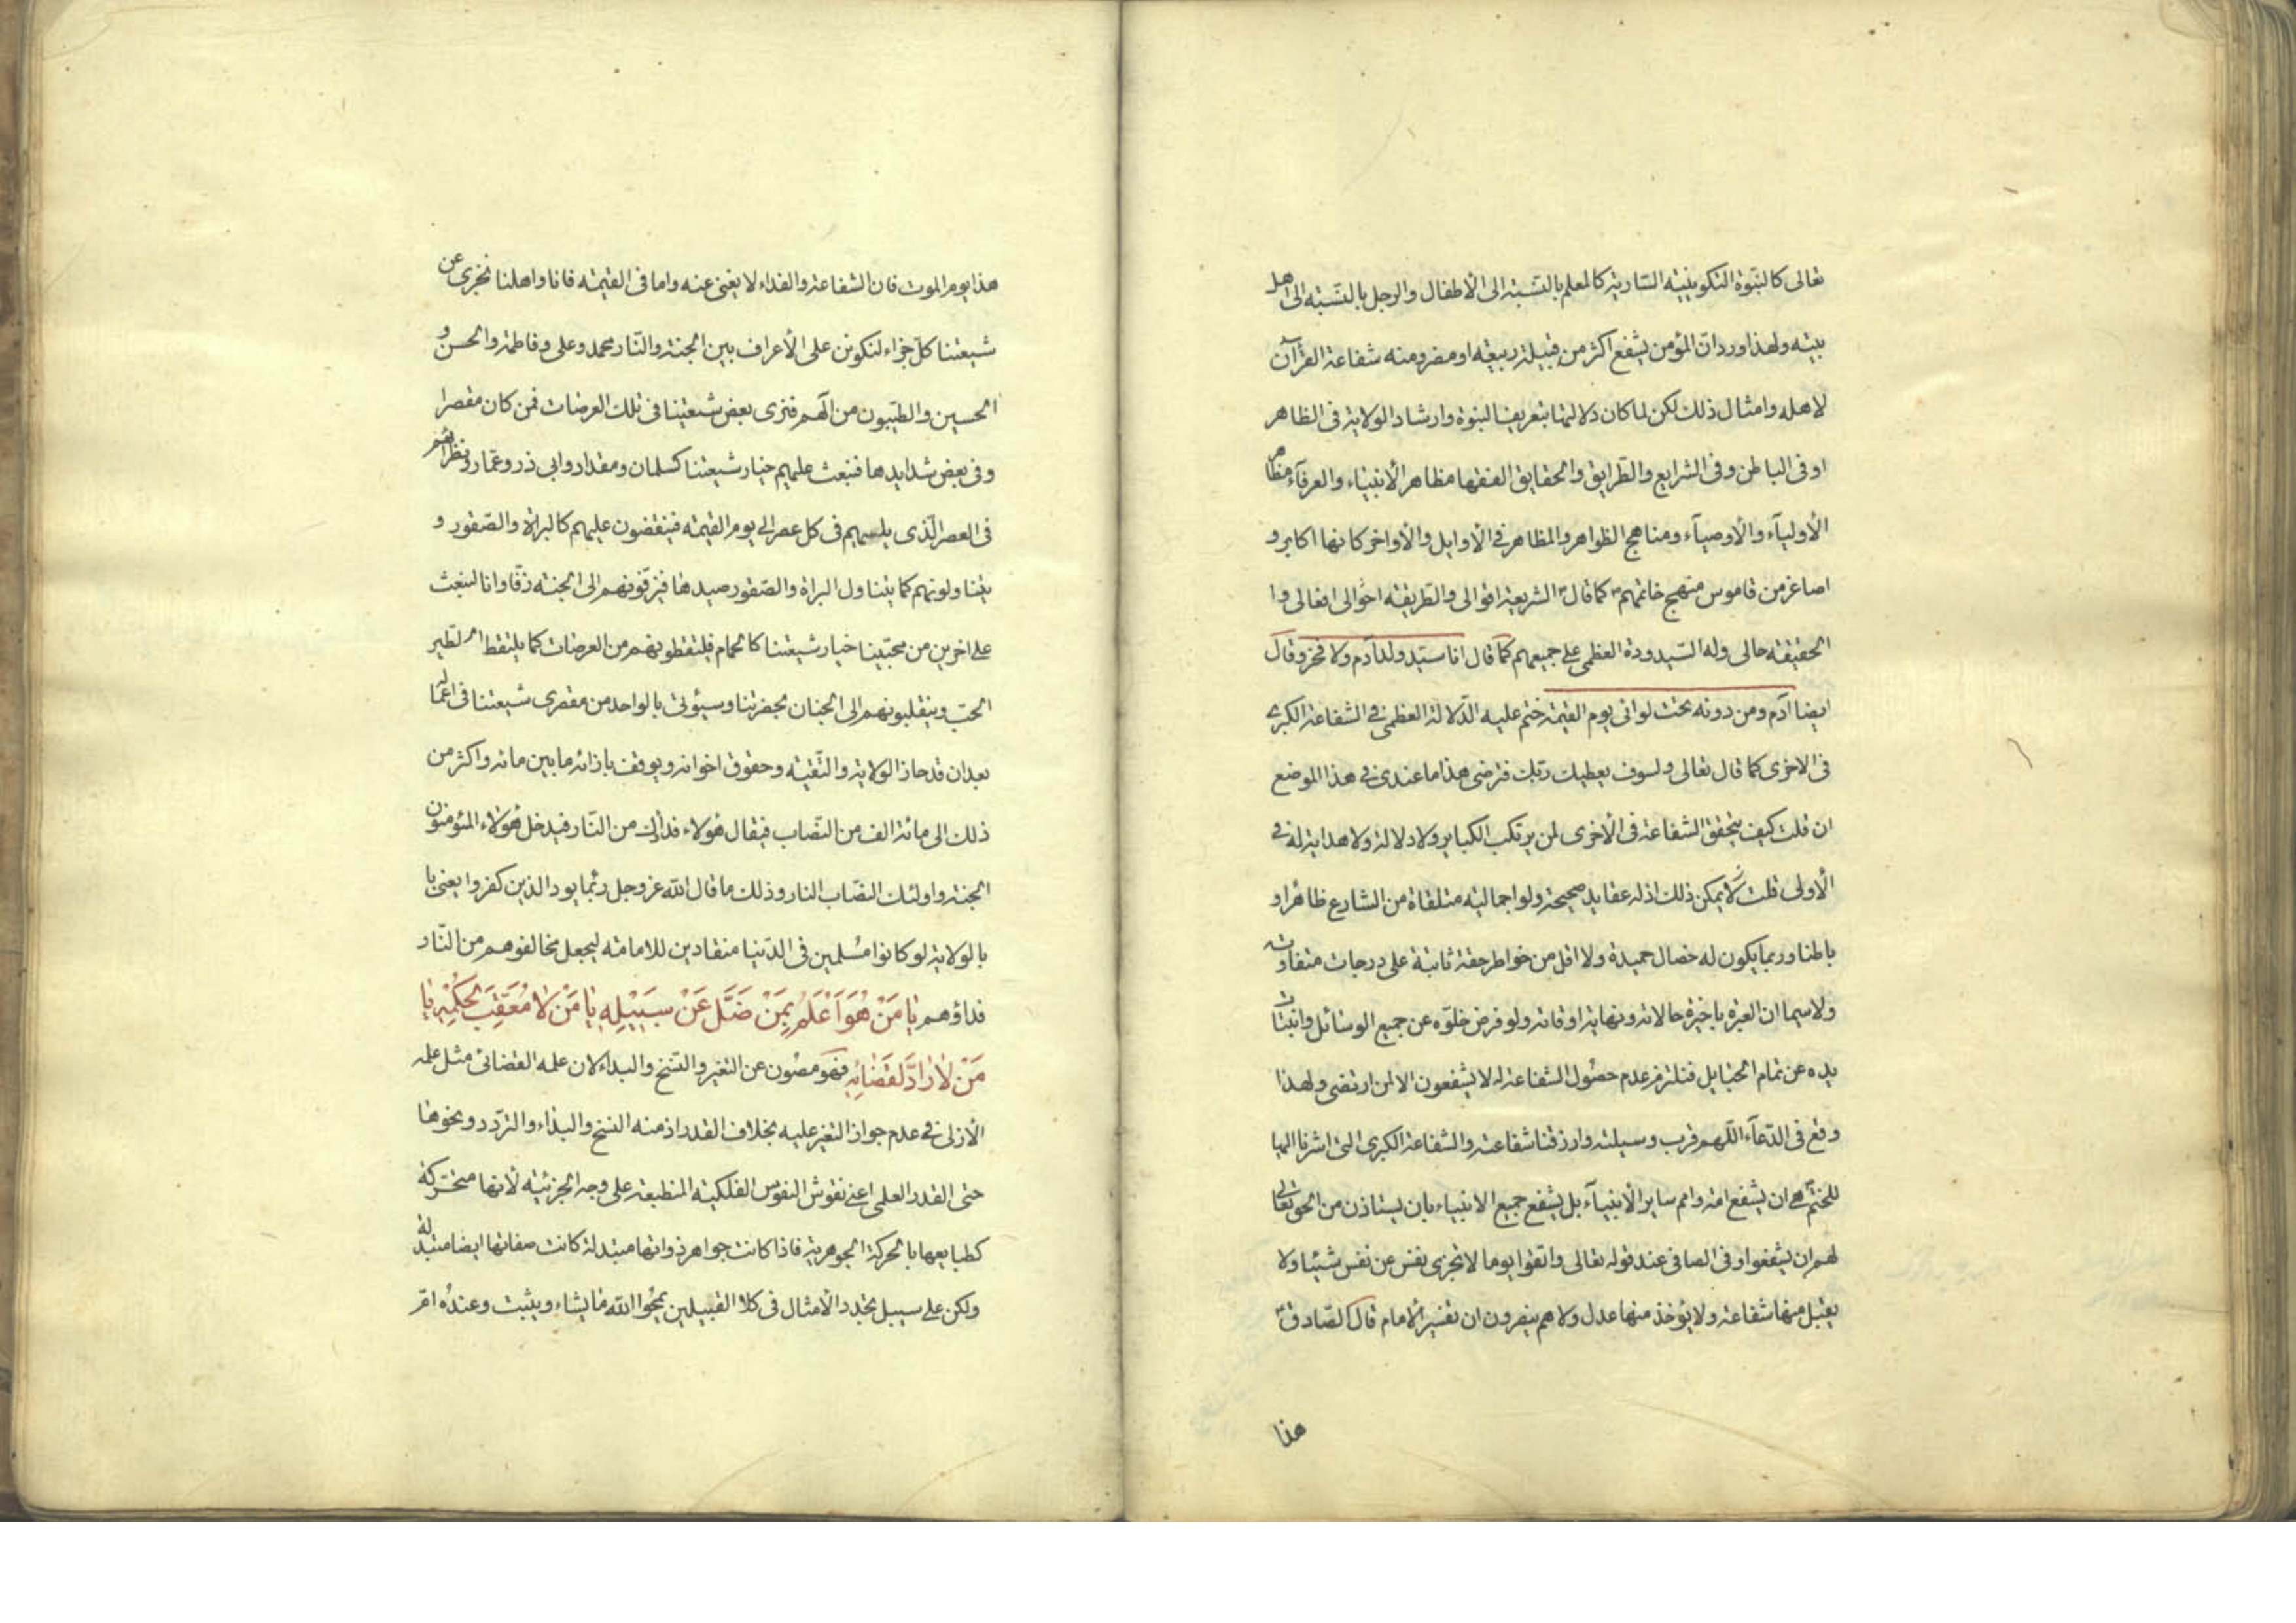 تعالى كالنبّوة التكوينيّة السّارية كالمعلم بالنسّبة الى الأطفال والرجل بالنسّبة الى اهل
بيته ولهذا ورد انّ المؤمن يشفع اكثر من قبيلة ربيعة او مضر ومنه شفاعة القرآن
لاهله وامثال ذلك لكن لما كان دلالتها بتعريف النبوة وارشاد الولاية فى الظاهر
او فى الباطن وفى الشرايع والطّرايق والحقايق الفقها مظاهر الأنبياء والعرفآء مظاهر
الأوليآء والأوصيآء ومناهج الظواهر والمظاهر فى الأوايل والأواخر كانها اكابر و
اصاغر من قاموس منهج خاتمهم ص كما قال ص الشريعة اقوالى والطّريقة احوالى افعالى وا
الحقيقة حالى وله السّيدودة العظمى على جميعهم كما قال انا سيّد ولد آدم ولا فخر وقال
ايضا آدم ومن دونه تحت لوائى يوم القيمة ختم عليه الدّلالة العظمى فى الشفاعة الكبرى
فى الاخرى كما قال تعالى ولسوف يعطيك ربّك فترضى هذا ما عندى فى هذا الموضع
ان قلت كيف يتحقق الشفاعة فى الأخرى لمن يرتكب الكباير ولا دلالة ولا هداية له فى
الأولى قلت لا يمكن ذلك اذ له عقايد صحيحة ولو اجمالية متلقاة من الشارع ظاهرا و
باطنا وربما يكون له خصال حميدة ولا اقل من خواطر حقة ثابتة على درجات متفاوتة
ولا سيما ان العبرة باخيرة حالاته ونهاية اوقاته ولو فرض خلوّه عن جميع الوسائل وانبتات
يده عن تمام الحبايل فنلتزم عدم حصول الشفاعة له لا يشفعون الا لمن ارتضى ولهذا
وقع فى الدّعآء اللّهم قرب وسيلته وارزقنا شفاعته والشفاعة الكبرى التى اشرنا اليها
للختم ص هى ان يشفع امته وامم ساير الأنبيآء بل يشفع جميع الانبياء بان يستاذن من الحق تعالى
لهم ان يشفعوا وفى الصافى عند قوله تعالى واتقوا يوما لا تجزى نفس عن نفس شيئا ولا
يقبل منها شفاعة ولا يؤخذ منها عدل ولا هم ينصرون ان تفسير الأمام قال الصّادق ع
هذا
هذا يوم الموت فان الشفاعة والفداء لا يغنى عنه واما فى القيمة فانا واهلنا نجزى عن
شيعتنا كلّ جزاء لنكونن على الأعراف بين الجنة والنّار محمد وعلى وفاطمة والحسن و
الحسين والطيّبون من آلهم فنرى بعض شيعتنا فى تلك العرصات فمن كان مقصرا
وفى بعض شدايدها فنبعث عليهم خيار شيعتنا كسلمان ومقداد وابى ذر وعمّار ونظرائهم
فى العصر الّذى يليهم فى كل عصر الى يوم القيمة فينقضون عليهم كالبزاة والصّقور و
يتناولونهم كما يتناول البزاة والصّقور صيدها فيزفّونهم الى الجنة زفّا وانا لنبعث
على اخرين من محبّينا خيار شيعتنا كالحمام فيلتقطونهم من العرصات كما يلتقط الطير
الحبّ وينقلبونهم الى الجنان بحضرتنا وسيؤتى بالواحد من مقصرى شيعتنا فى اعماله
بعد ان قد حاز الولاية والتّقية وحقوق اخوانه ويوقف بازائه ما بين مائة واكثر من
ذلك الى مائة الف من النصّاب فيقال هؤلاء فداؤك من النّار فيدخل هؤلاء المؤمنون
الجنة واولئك النصّاب النار وذلك ما قال الله عز وجل ربّما يود الذين كفروا يعنى با
بالولاية لو كانوا مُسلمين فى الدّنيا منقادين للامامة ليجعل مخالفوهم من النّار
فداؤهم يا مَنْ هُوَ اَعْلَمُ بِمَنْ ضَلَّ عَنْ سَبيْلِهِ يا مَنْ لا مُعَقِّبَ لِحُكْمِهِ يا
مَنْ لا رَادَّ لِقَضائِهِ فهو مصون عن التغير والنّسخ والبداء لان علمه القضائى مثل علمه
الأزلى فى عدم جواز التغير عليه بخلاف القدر اذ منه النسخ والبداء والتّردد ونحوها
حتى القدر العلمى اعنى نقوش النفوس الفلكية المنطبعة على وجه الجزئية لأنها متحّركة
كطبايعها بالحركة الجوهرية فاذا كانت جواهر ذواتها متبدلة كانت صفاتها ايضا متبدّلة
ولكن على سبيل تجدد الأمثال فى كلا القبيلين يمحُوا الله ما يشاء ويثبت وعندهُ امّ